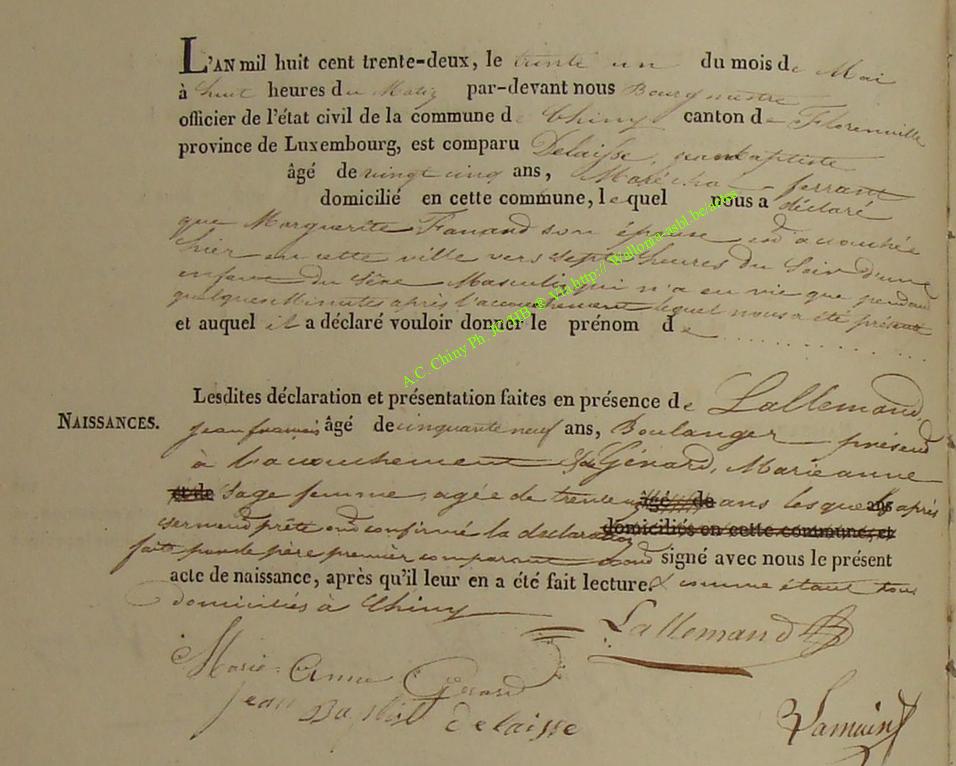 L'AN mil huit cent trente-deux, le trente un du mois de Mai
à huit heures du Matin par-devant nous Bourgmestre
officier de l'état civil de la commune de Chiny canton de Florenville
province de Luxembourg, est comparu Delaisse, jean Baptiste
âgé de vingt cinq ans, Maréchal ferrant
domicilié en cette commune, lequel nous a déclaré
que Marguerite son épouse est accouchée
hier en cette ville vers sept heures du soir d'une
enfant du sexe Masculin qui n'a eu vie que pendant
quelques Minutes après l'accouchement lequel nous a été présenté
et auquel il a déclaré vouloir donner le prénom de
Lesdites déclaration et présentation faites en présence de Lallemand,
NAISSANCES.
jean françois âgé de cinquante neuf ans, Boulanger présent
à l'accouchement & de Gérard, Marie anne
et de Sage femme, agée de trente âgé de ans lesquels ans après
serment prêté ont confirmé la déclaration domiciliés en cette commune, et
faite par le père premier comparant & ont signé avec nous le présent
acte de naissance, après qu'il leur en a été fait lecture & comme étant tous
domiciliés à Chiny
Lallemand
Marie-Anne Gérard
jean Baptist delaisse
A.C. Chiny Ph. JC HB ® via http:// Wallonia-asbl.be/arden